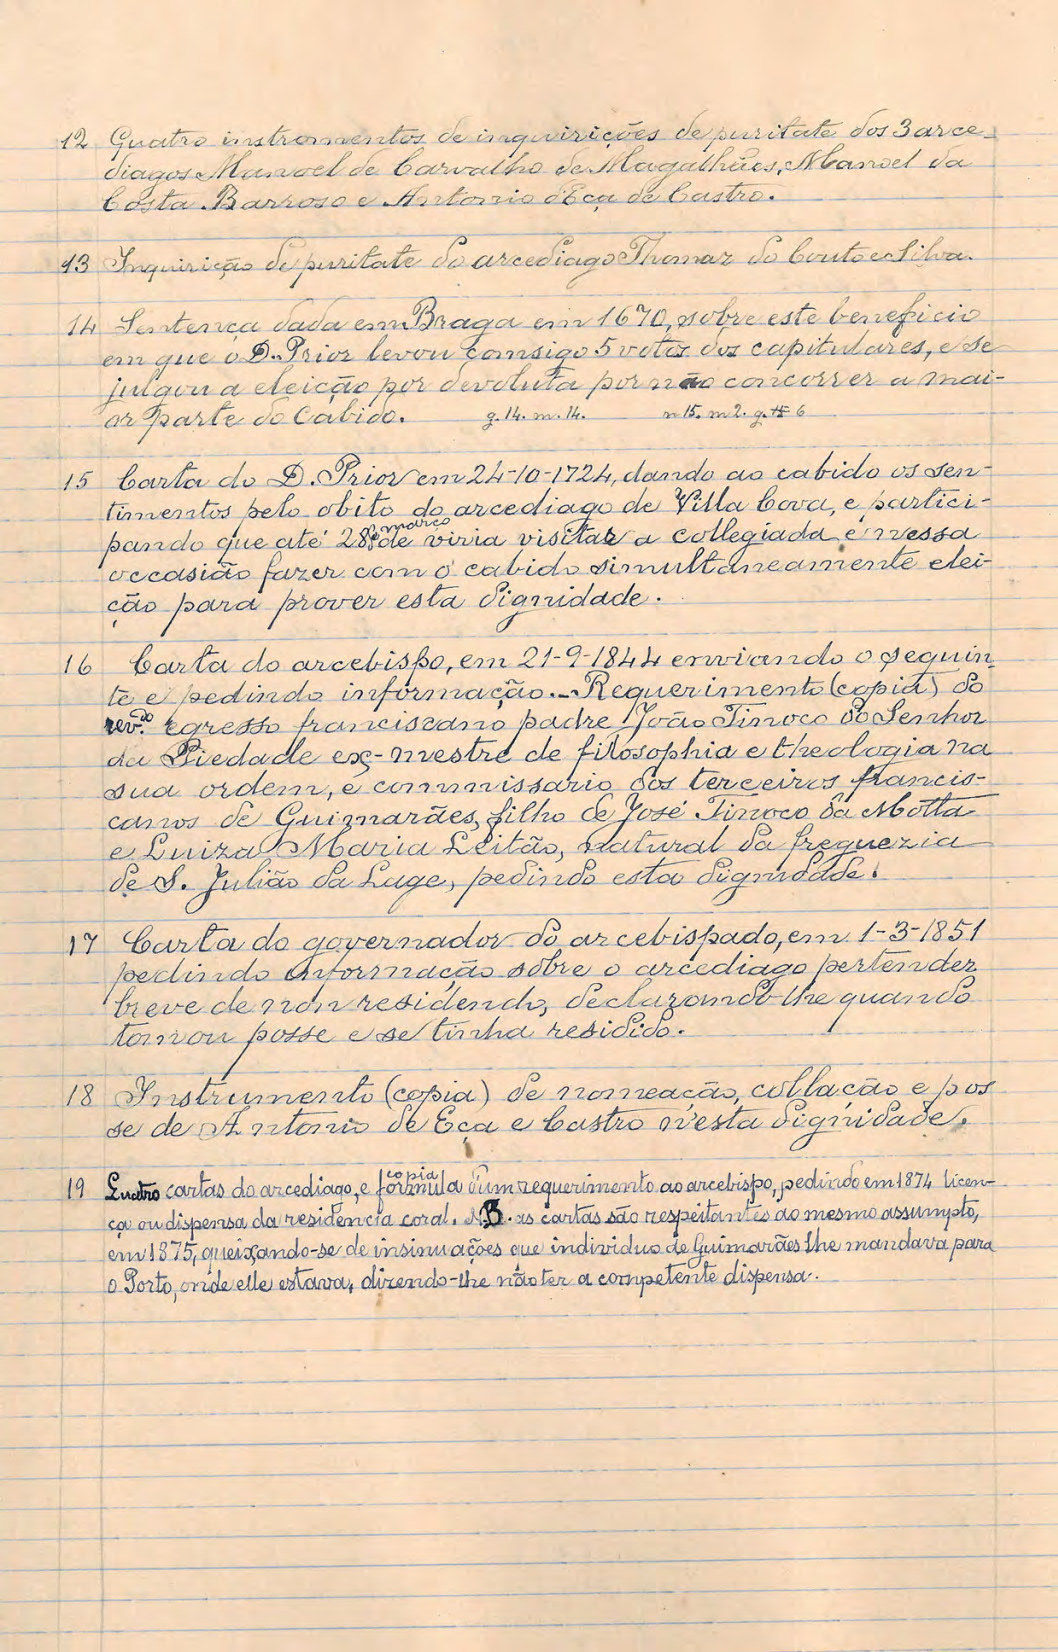 12 Quatro instromentos de inquirições de puritate dos 3 arce-
diagos Manoel de Carvalho de Magalhães, Manoel da
Costa Barroso e Antonio d'Eça de Castro.
13 Inquirição de puritate do arcediago Thomaz do Couto e Silva.
14 Sentença dada em Braga em 1670, sobre este beneficio
em que o D. Prior levou comsigo 5 votos dos capitulares, e se
julgou a eleição por devoluta por não concorrer a mai-
or parte do Cabido. g. 14. m. 14. n 15. m 2. g. 6
15 Carta do D. Prior em 24-10-1724, dando ao cabido os sen-
timentos pelo obito do arcediago de Villa Cova, e partici-
pando que até 28 de março viria visitar a collegiada e nessa
occasião fazer com o cabido simultaneamente elei-
ção para prover esta dignidade.
16 Carta do arcebispo, em 21-9-1844 enviando o seguin-
te e pedindo informação. - Requerimento (copia) do
rev.do egresso franciscano padre João Tinoco do Senhor
da Piedade ex-mestre de filosophia e theologia na
sua ordem, e commissario dos terceiros francis-
canos de Guimarães, filho de José Tinoco da Motta
e Luiza Maria Leitão, natural da freguezia
de S. Julião da Lage, pedindo esta dignidade.
17 Carta do governador do arcebispado, em 1-3-1851
pedindo informação sobre o arcediago pertender
breve de non residendo, declarando-lhe quando
tomou posse e se tinha residido.
18 Instrumento (copia) de nomeação, collação e pos
se de Antonio de Eça e Castro n'esta dignidade.
19 Quatro cartas do arcediago, e copia formula d'um requerimento ao arcebispo, pedindo em 1874 licen-
ça ou dispensa da residencia coral. N.B. as cartas são respeitantes ao mesmo assumpto,
em 1875, queixando-se de insinuações que individuo de Guimarães lhe mandava para
o Porto, onde elle estava, dizendo-lhe não ter a competente dispensa.